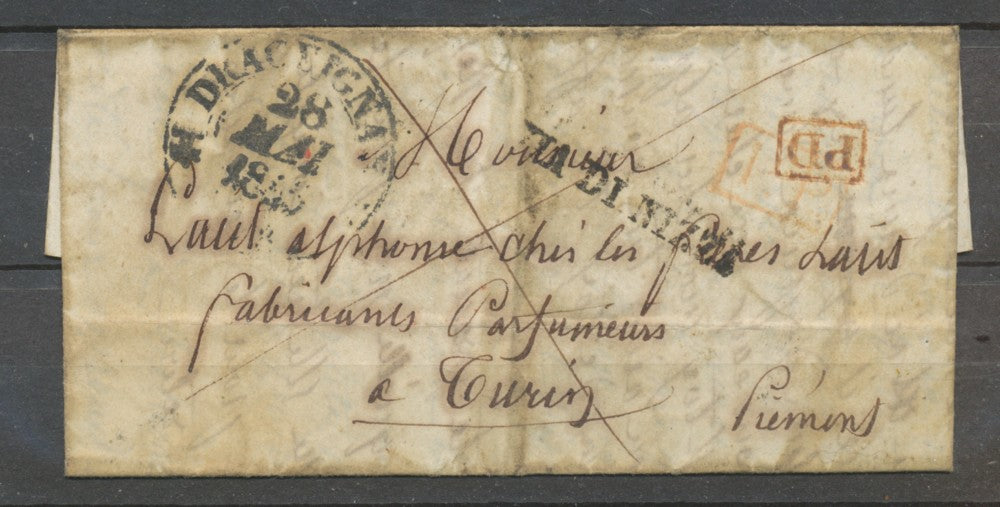 DRAGUIGNAN
28
MAI
PD
VIA DI NIZZA
Monsieur
Laut alphonse chès les frères Laut
fabricants Parfumeurs
a Turin
Piémont